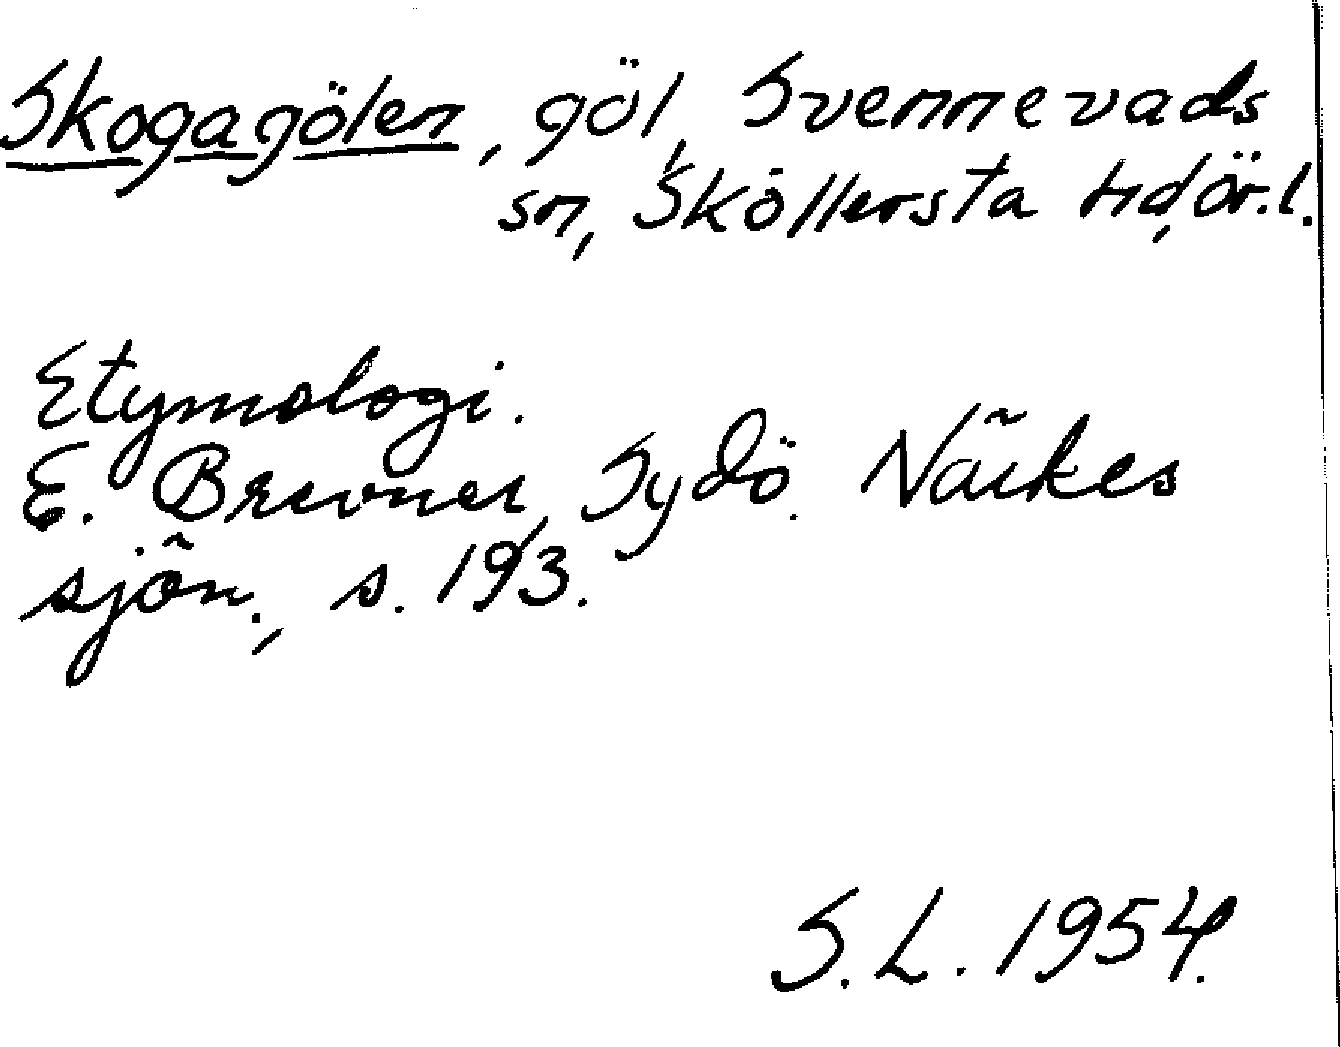 Skogagölen, göl, Svennevads
sn, Sköllersta hd, Ör. l.
Etymologi.
E. Brevner, Sydö. Närkes
sjön., s. 193.
S. L. 1954.